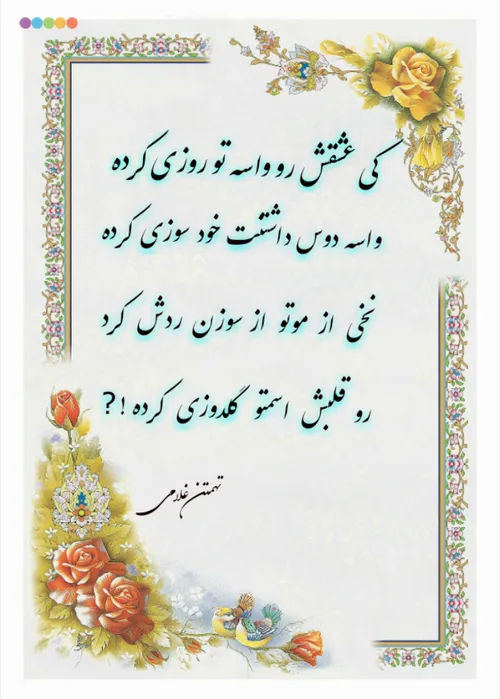 کی عشقش رو واسه تو روزی کرده
واسه دوس داشتنت خود سوزی کرده
نخی از موتو از سوزن ردش کرد
رو قلبش اسمتو گلدوزی کرده !?
تهمتن غلامی